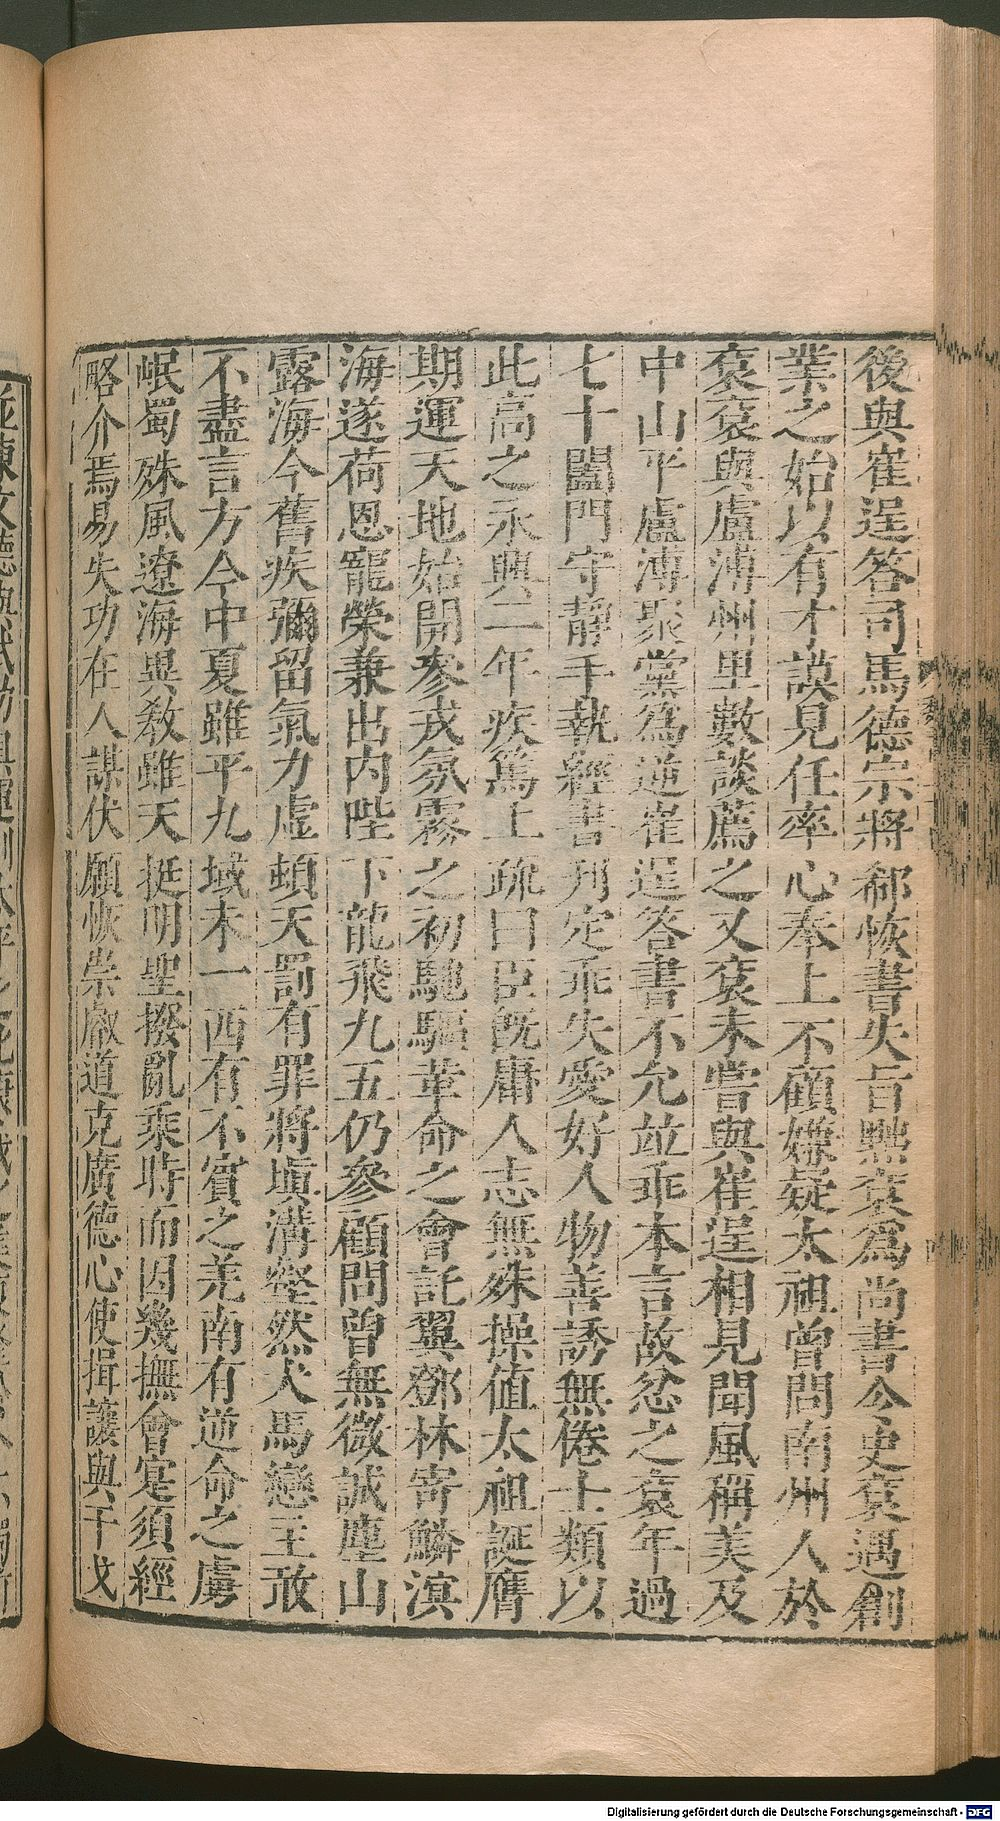 後與崔逞答司馬德宗將郗恢書失旨黜袞爲尚書令史袞遇創
業之始以有才謨見任率心奉上不顧嫌疑太祖曾問南州人於
袞袞與盧溥州里數談薦之又袞未嘗與崔逞相見聞風稱美及
中山平盧溥聚黨爲逆崔逞答書不允並乖本言故忿之袞年過
七十闔門守靜手執經書刋定乖失愛好人物善誘無倦士類以
此高之永興二年疾篤上疏曰臣旣庸人志無殊操值太祖誕膺
期運天地始開參戎氛霧之初馳驅革命之會託翼鄧林寄鱗溟
海遂荷恩寵榮兼出内陛下龍飛九五仍參顧問曾無微誠塵山
露海今舊疾彌留氣力虛頓天罰有罪將塡溝壑然犬馬戀主敢
不盡言方今中夏雖平九域未一西有不賓之羌南有逆命之虜
岷蜀殊風遼海異敎雖天挺明聖撥亂乘時而因幾撫會寔須經
略介焉易失功在人謀伏願恢崇叡道克廣德心使揖讓與干戈
Digitalisierung gefördert durch die Deutsche Forschungsgemeinschaft - DFG